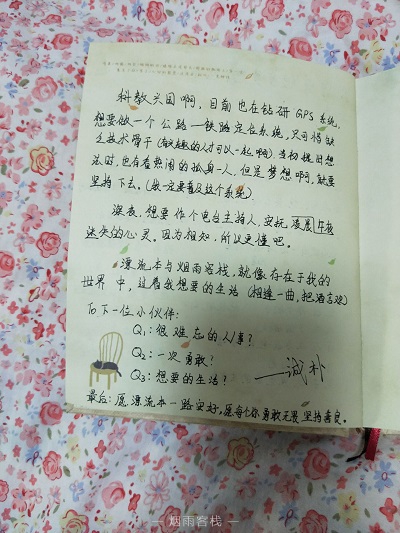 科教兴国啊，目前也在钻研 GPS 系统，
想要做一个公路—铁路定位系统，只可惜缺
乏技术骨干（有兴趣的人才可以一起啊）。当初提出想
法时，也有着热闹的孤身一人，但是梦想啊，就要
坚持下去。（我一定要普及这个系统）
深夜，想要作个电台主持人，安抚凌晨午夜
迷失的心灵。因为相知，所以更懂吧。
漂流本与烟雨客栈，就像存在于我的
世界中，过着我想要的生活（相逢一曲，把酒言欢）
To 下一位小伙伴：
Q1：很难忘的人/事？
Q2：一次勇敢？
Q3：想要的生活？
——诚朴
最后：愿漂流本一路安好，愿每个你勇敢无畏坚持善良。
— 烟雨客栈 —